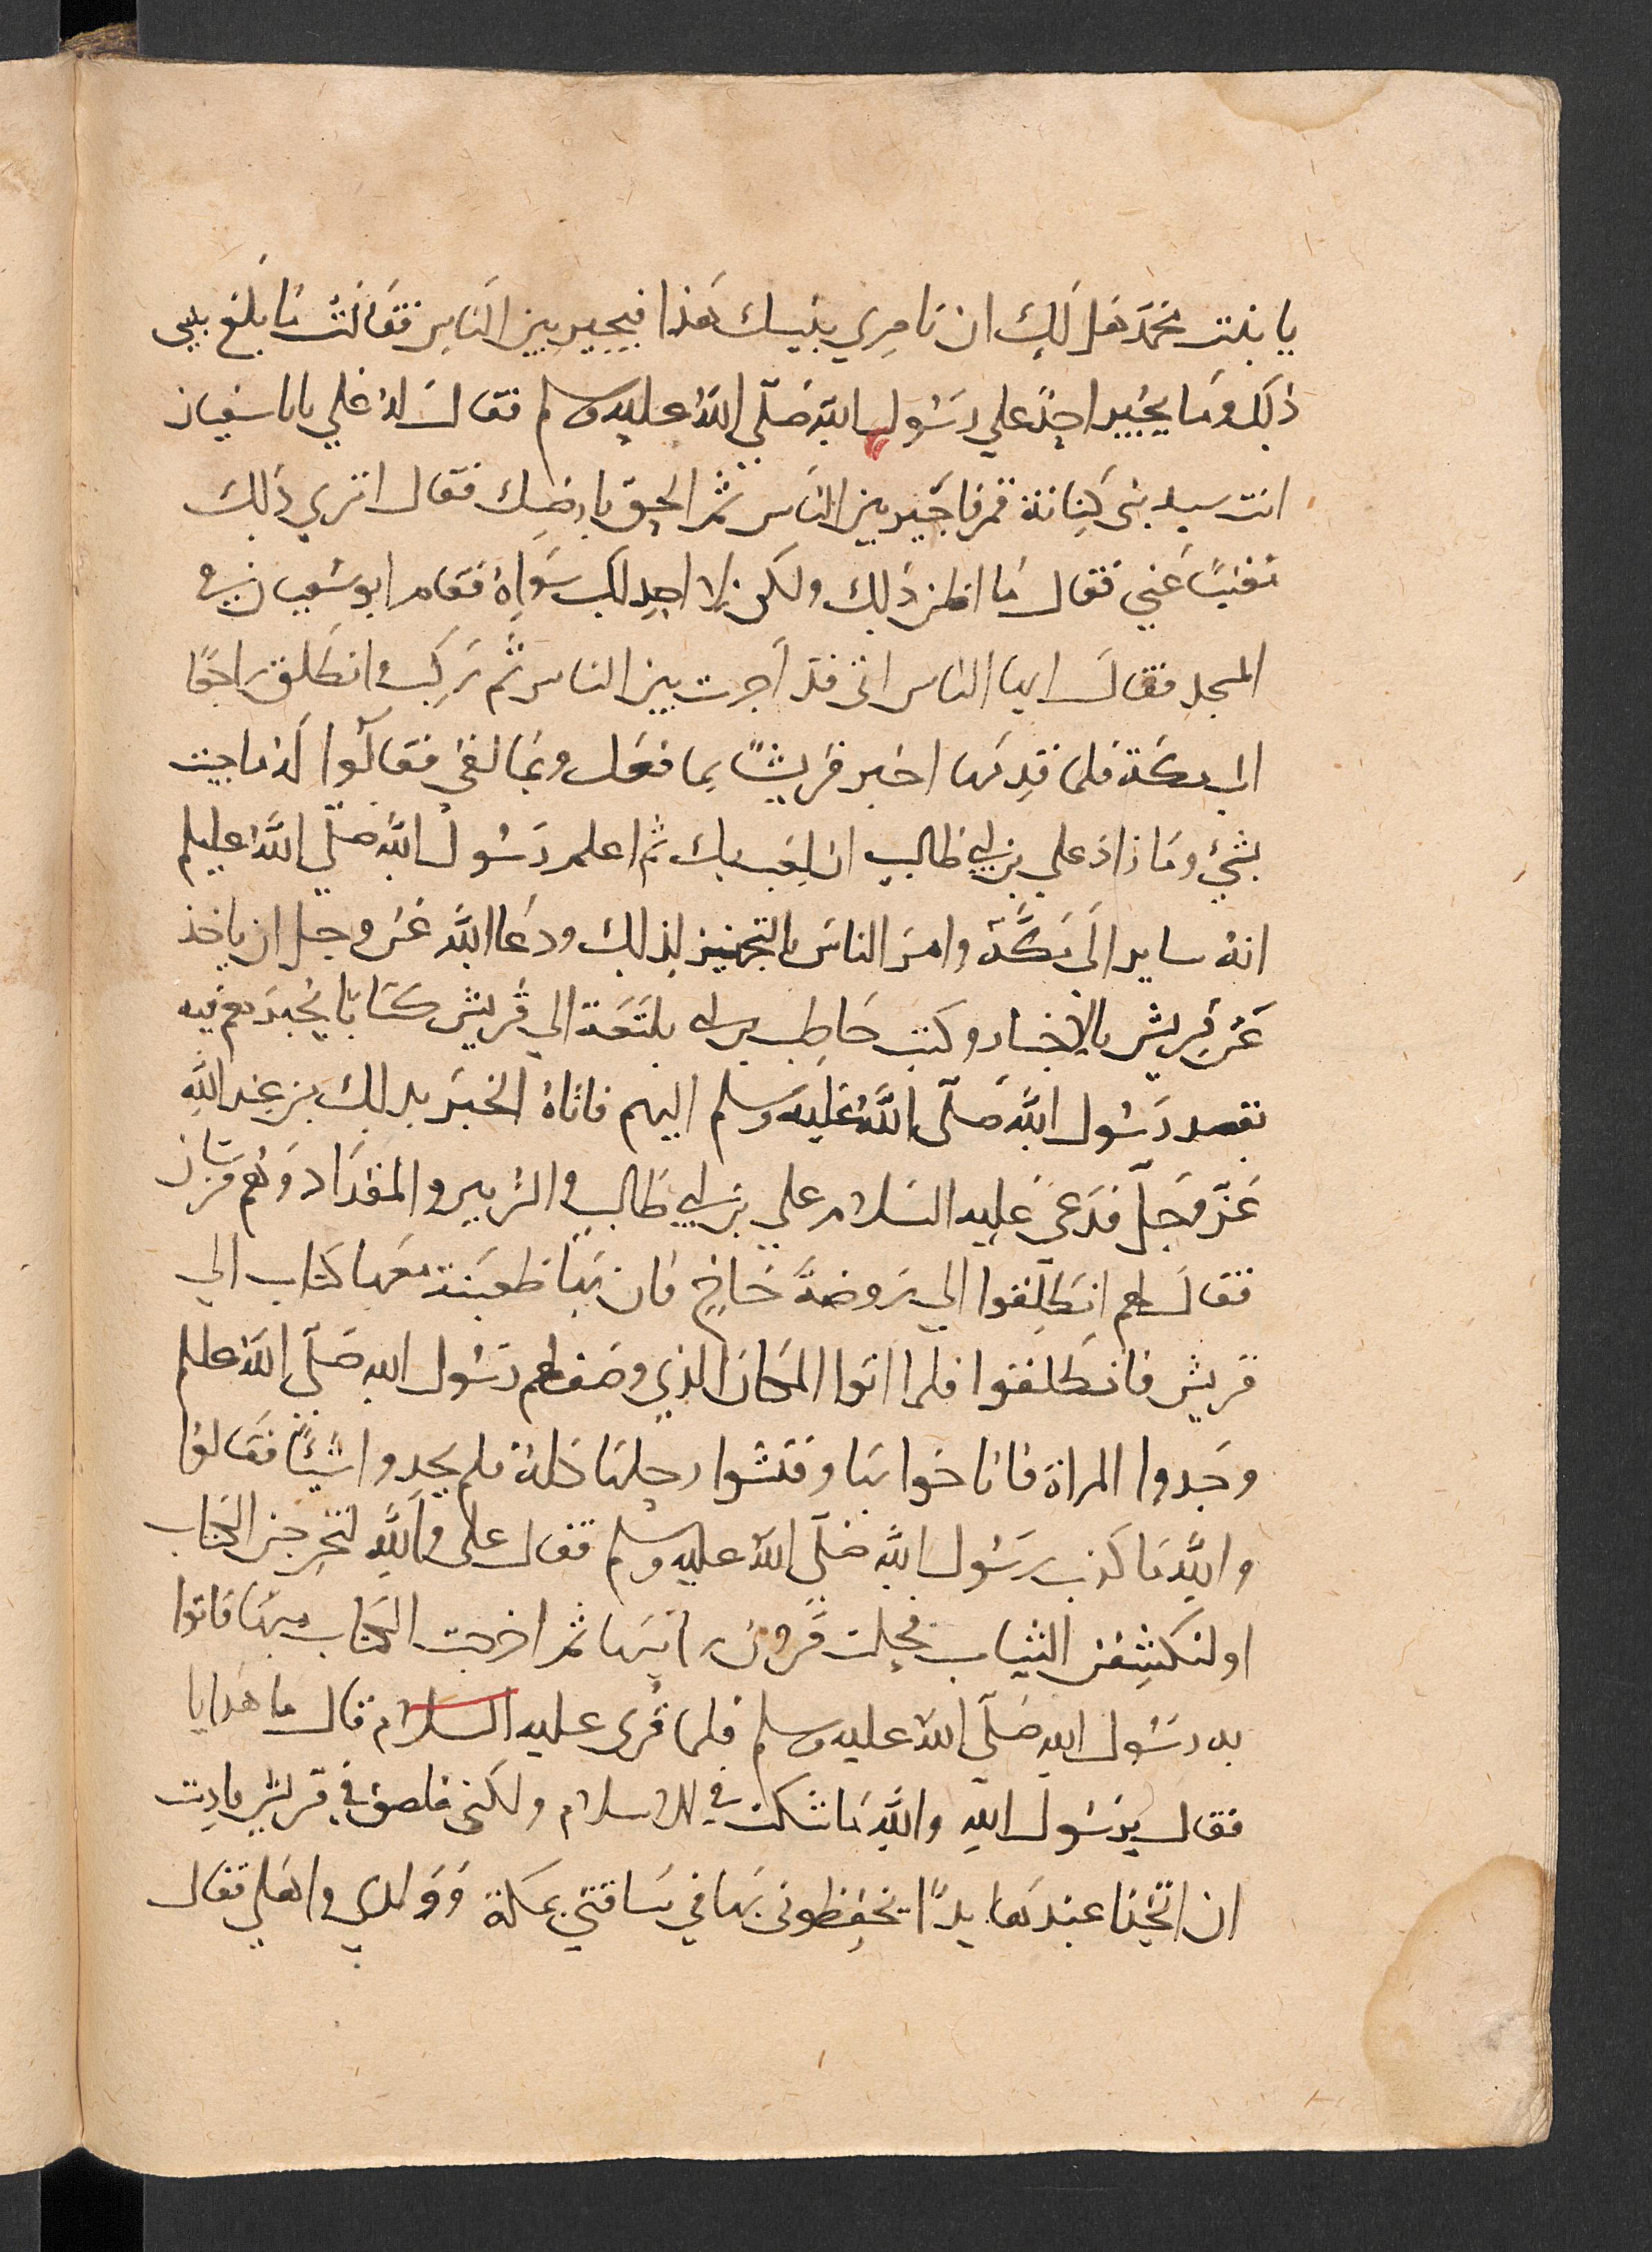 يا بنت محمّد هل لكِ ان تامري بنيك هذا فيجير بين الناس فقالت ما بلغ بنيى
ذلك وما يجير احدٌ علي رسول الله صلّى الله عليه وسلم فقال له علي يابا سفيان
انت سيد بنى كِنانة قم فاجير بين الناس ثم الحق بارضك فقال اتري ذلك
مغنيًا عني فقال ما اظن ذلك ولكن لا اجد لك سواه فقام ابو سفيان في
المسجد فقال ايها الناس انى قد اجرت بين الناس ثم ركب وانطلق راجعًا
الى مكة فلما قدمها اخبر قريشًا بما فعل وبما لقى فقالوا له ما جيت
بشيْ وما زاد علي بن ابي طالب ان لعب بك ثم اعلم رسول الله صلّي الله عليلم
انه ساير الى مكّة وامر الناس بالتجهيز لذلك ودعا الله عز وجل ان ياخذ
عن قريش بالاخبار وكتب حاطب بن ابى بلتعة الي قريش كتابا يخبرهم فيه
بقصد رسول الله صلّى الله عليه وسلم اليهم فاتاهُ الخبر بذلك من عند الله
عزّ وجلّ فدعى عليه السلام علي بن ابي طالب والزبير والمقداد وهم فرسان
فقال لهم انطلقوا الي روضة خاخٍ فان بها ظعينة معها كتاب الي
قريش فانطلقوا فلما اتوا المكان الذي وصف لهم رسول الله صلّي الله علىلم
وجدوا المراة فاناخوا بها وفتشوا رحلها كله فلم يجدوا شيئًا فقالوا
والله ما كذب رسول الله صلّي الله عليه وسلم فقال على والله لتخرجن الكتاب
او لنكشفن الثياب فحلت قرون راسها ثم اخرجت الكتاب منها فاتوا
به رسول الله صلّي الله عليه وسلم فلما قرى عليه السلام قال ما هذا يا
فقال يرسول الله والله ما شككت في الاسلام ولكنى ملصق في قريش فاردت
ان اتخذ عندهم يدًا يحفظونى بها في شاقتي بمكة وولدي واهلي فقال